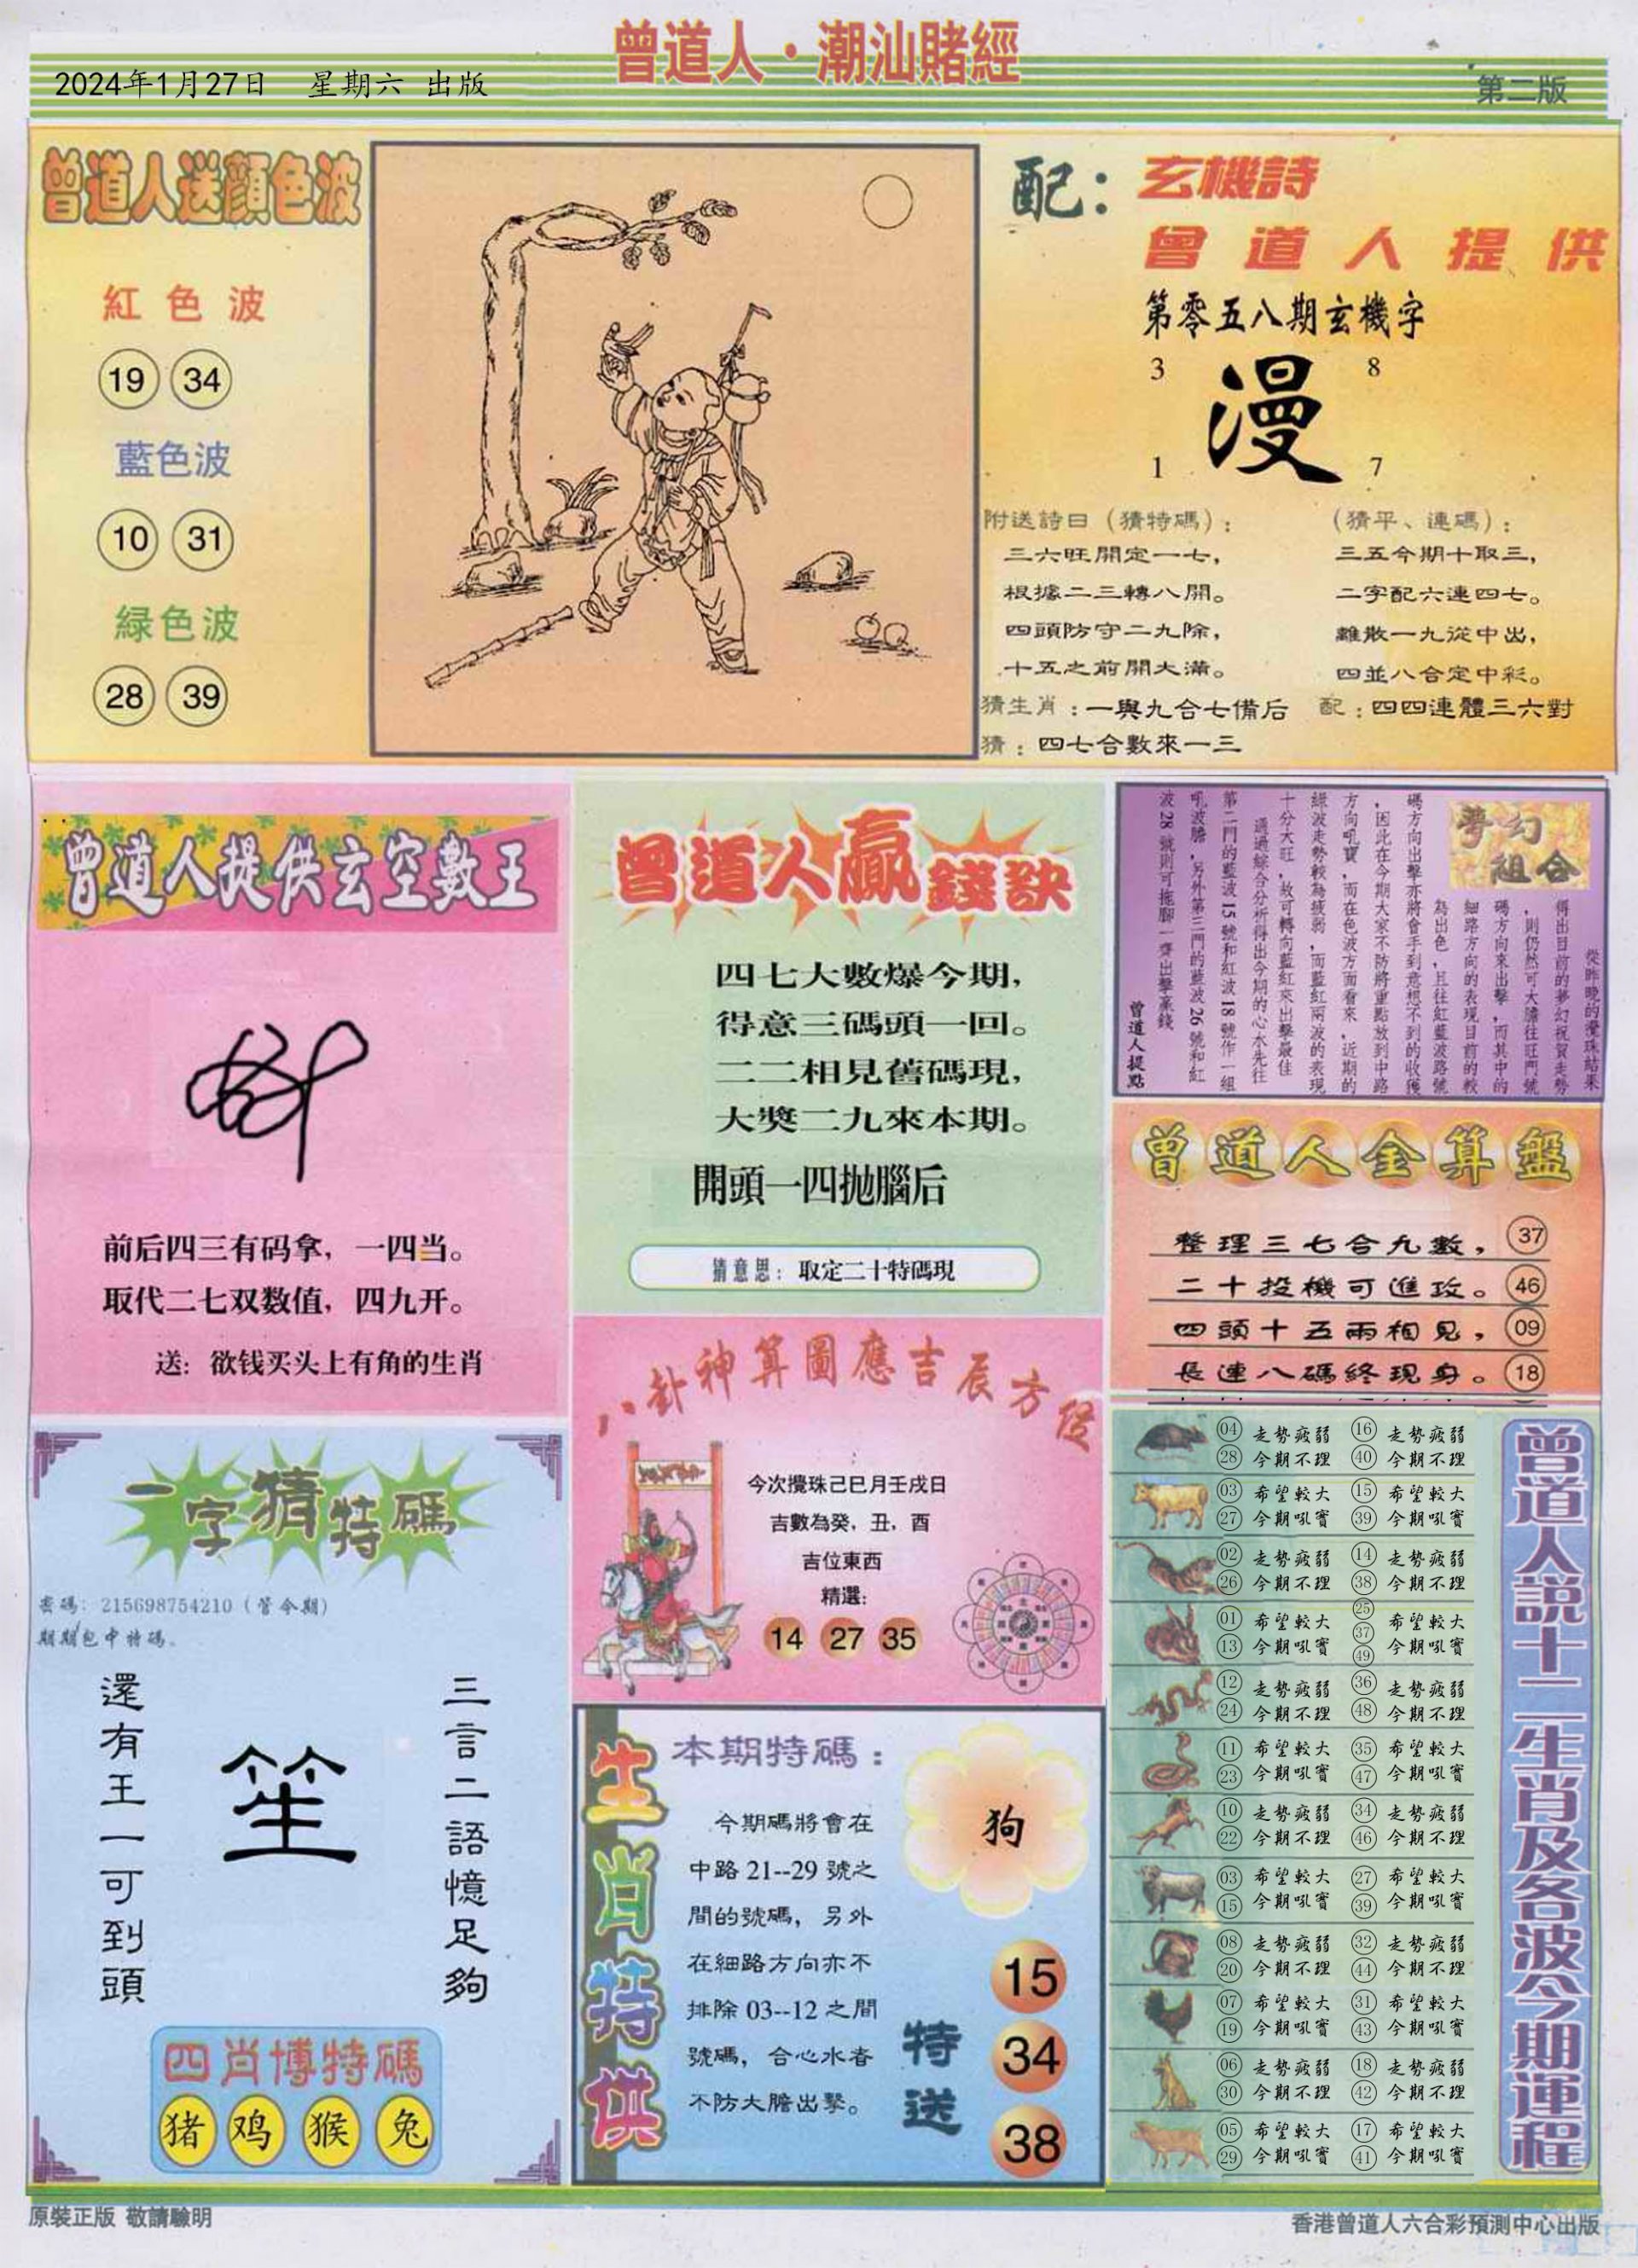 曾道人·潮汕賭經
2024年1月27日 星期六 出版
第二版
曾道人送顔色波
紅色波
19 34
藍色波
10 31
緑色波
28 39
配：玄機詩
曾道人提供
第零五八期玄機字
3 8
漫
1 7
附送詩日（猜特碼）：
三六旺開定一七，
根據二三轉八開。
四頭防守二九除，
十五之前開大滿。
（猜平、連碼）：
三五今期十取三，
二字配六連四七。
離散一九從中出，
四並八合定中彩。
猜生肖：一與九合七備后 配：四四連體三六對
猜：四七合數來一三
曾道人提供玄空數王
前后四三有码拿，一四当。
取代二七双数值，四九开。
送：欲钱买头上有角的生肖
曾道人贏錢訣
四七大數爆今期，
得意三碼頭一回。
二二相見舊碼現，
大獎二九來本期。
開頭一四抛腦后
猜意思：取定二十特碼現
夢幻
組合
從昨晚的攪珠結果
得出目前的夢幻祝賀走勢
，則仍然可大膽往旺門號
碼方向來出擊，而其中的
細路方向的表現目前的較
為出色，且往紅藍波路號
碼方向出擊亦將會手到意想不到的收獲
，因此在今期大家不防將重點放到中路
方向吼寶，而在色波方面看來，近期的
緑波走勢較為疲弱，而藍紅兩波的表現
十分大旺，故可轉向藍紅來出擊最佳
通過綜合分析得出今期的心水先往
第二門的藍波15號和紅波18號作一組
吼波膽，另外第三門的藍波26號和紅
波28號則可拖脚一齊出擊贏錢
曾道人提點
曾道人金算盤
整理三七合九數， 37
二十投機可進攻。 46
四頭十五兩相見， 09
長連八碼終現身。 18
一字猜特碼
密碼：215698754210（管今期）
期期包中特碼。
三言二語憶足夠
笙
還有王一可到頭
四肖博特碼
猪 鸡 猴 兔
八卦神算圖應吉辰方位
今次攪珠己巳月壬戌日
吉數為癸，丑，酉
吉位東西
精選：
14 27 35
生肖特供
本期特碼：
今期碼將會在
中路21--29號之
間的號碼，另外
在細路方向亦不
排除03--12之間
號碼，合心水者
不防大膽出擊。
狗
特送
15
34
38
曾道人說十二生肖及各波今期運程
04 走勢疲弱 16 走勢疲弱
28 今期不理 40 今期不理
03 希望較大 15 希望較大
27 今期吼實 39 今期吼實
02 走勢疲弱 14 走勢疲弱
26 今期不理 38 今期不理
01 希望較大 25 37 希望較大
13 今期吼實 49 今期吼實
12 走勢疲弱 36 走勢疲弱
24 今期不理 48 今期不理
11 希望較大 35 希望較大
23 今期吼實 47 今期吼實
10 走勢疲弱 34 走勢疲弱
22 今期不理 46 今期不理
03 希望較大 27 希望較大
15 今期吼實 39 今期吼實
08 走勢疲弱 32 走勢疲弱
20 今期不理 44 今期不理
07 希望較大 31 希望較大
19 今期吼實 43 今期吼實
06 走勢疲弱 18 走勢疲弱
30 今期不理 42 今期不理
05 希望較大 17 希望較大
29 今期吼實 41 今期吼實
原裝正版 敬請驗明
香港曾道人六合彩預測中心出版